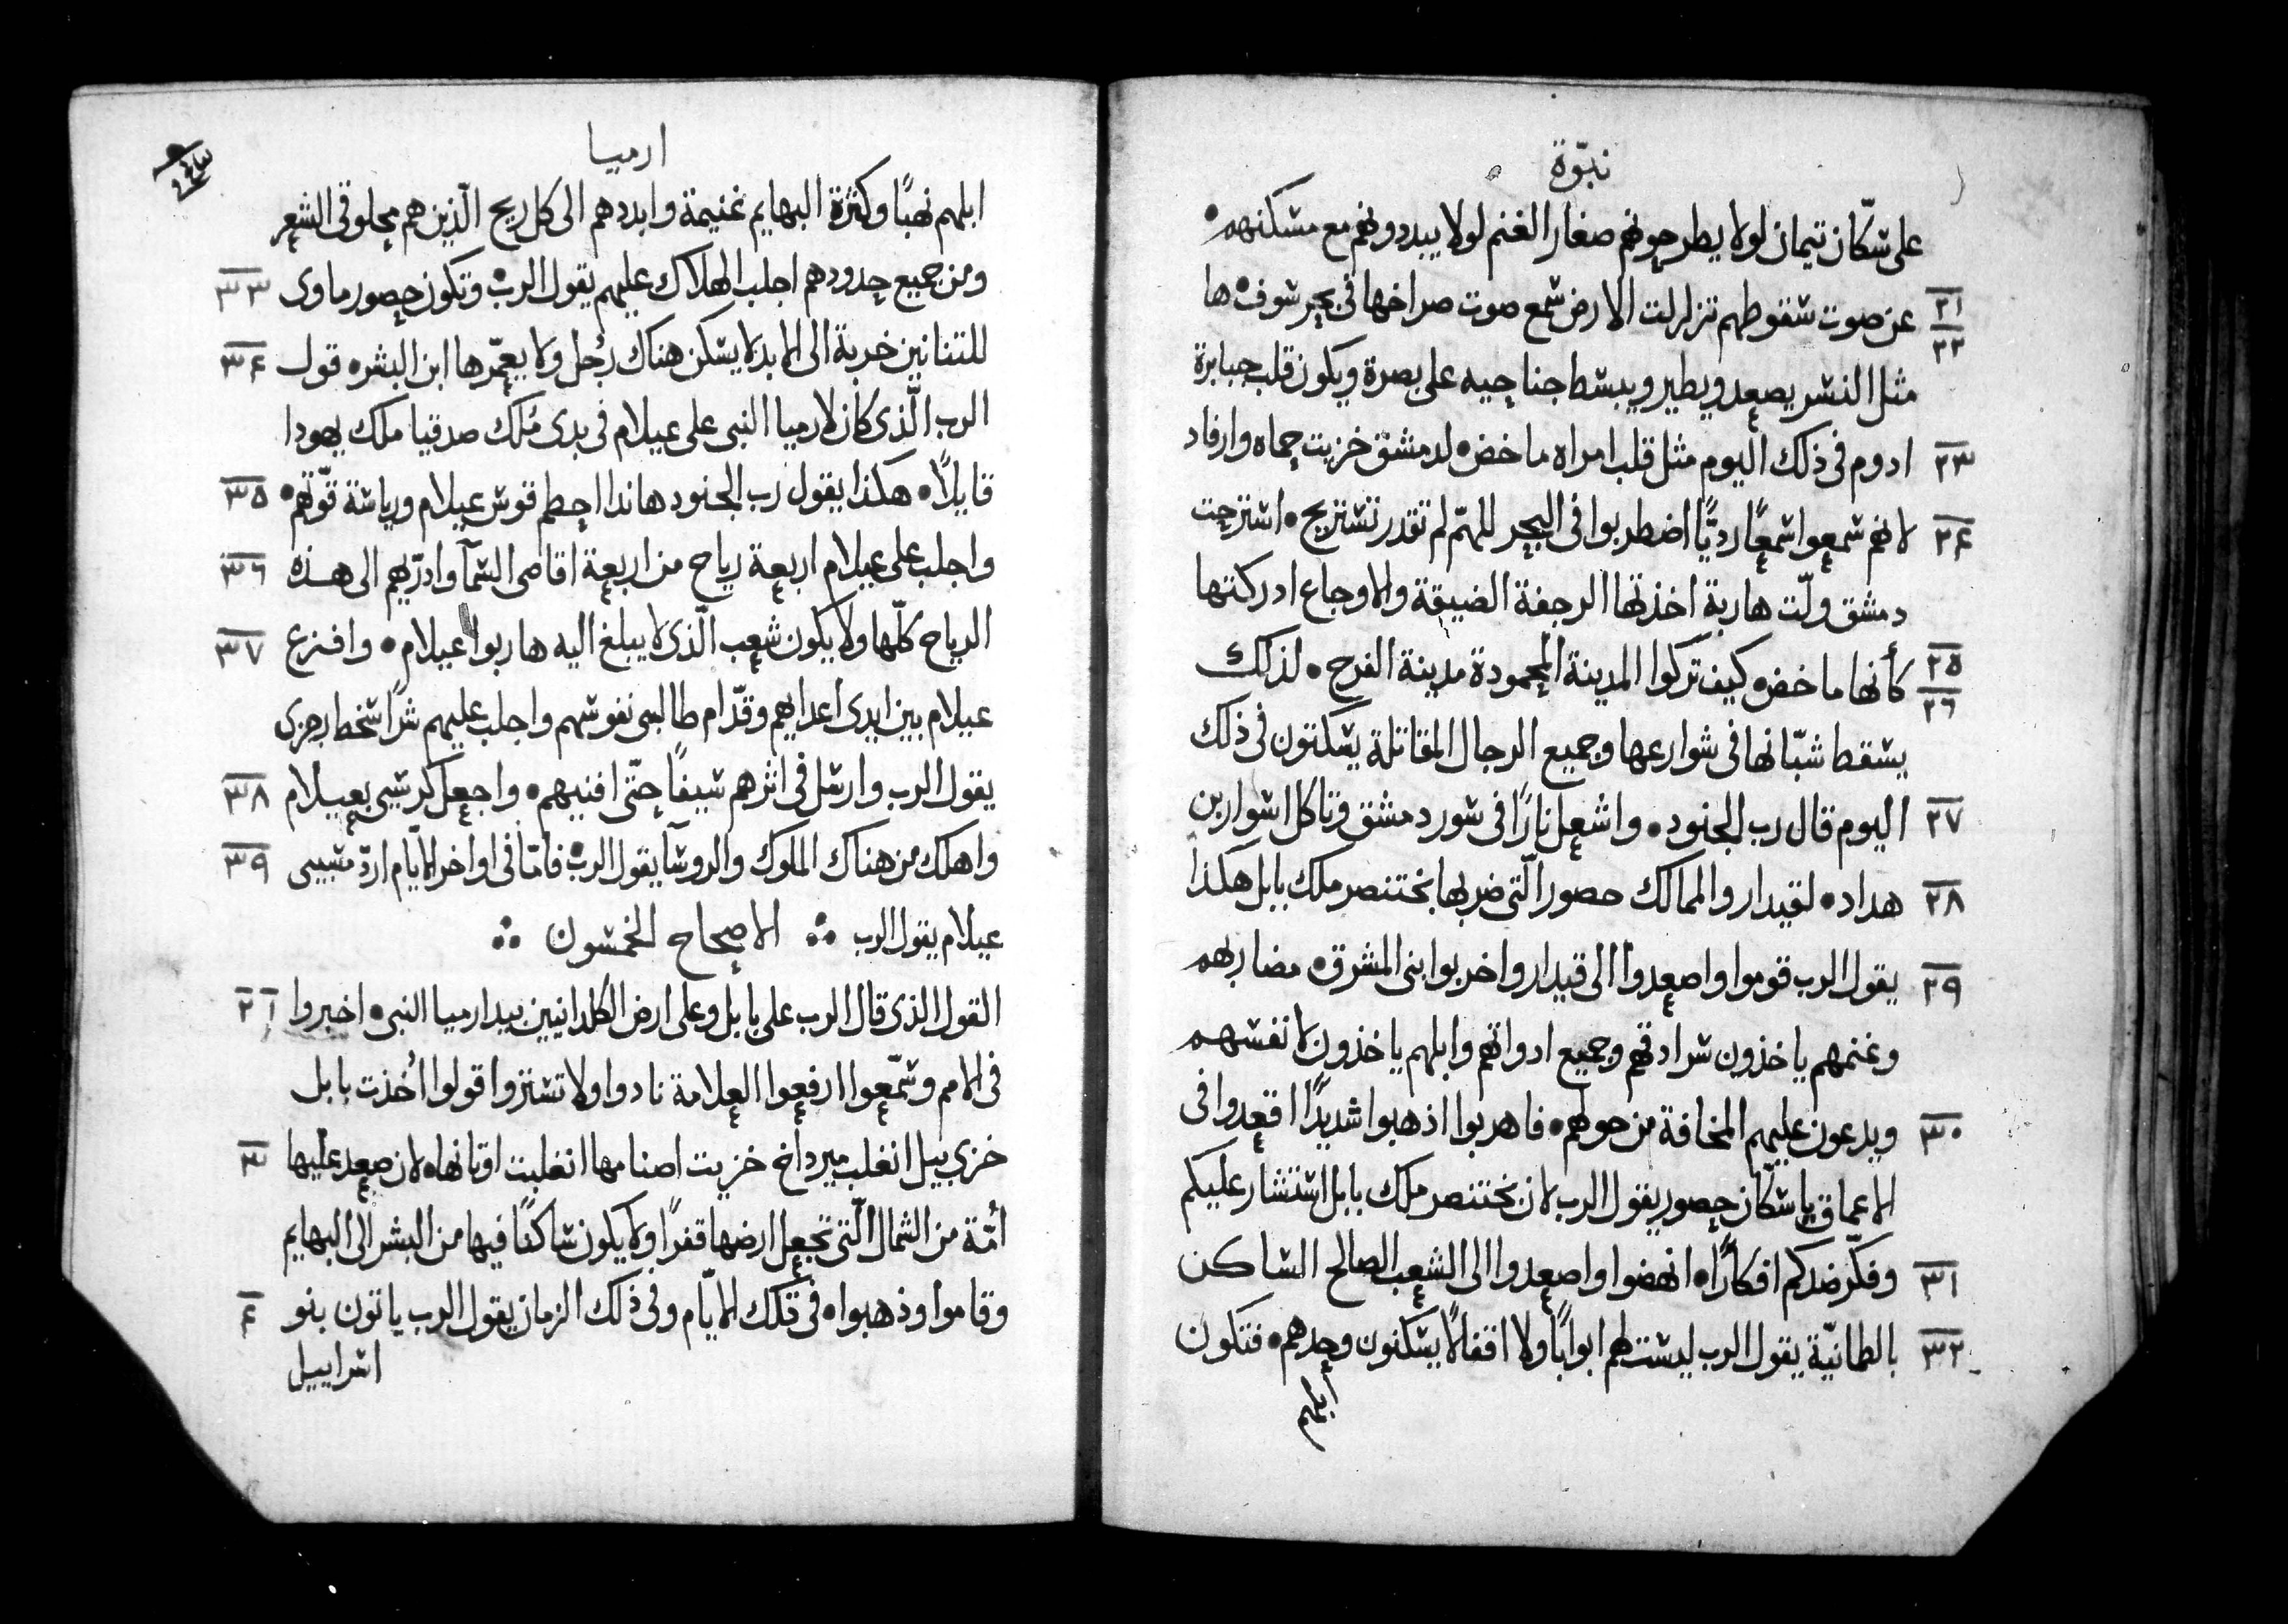 نبوّة
على سكّان تيمان لولا يطرحونهم صغار الغنم لولا يبددونهم مع مسكنهم •
٢١ عن صوت سقوطهم تزلزلت الارض سمع صوت صراخها فى بحر سوف • ها
٢٢ مثل النسر يصعد ويطير ويبسط جناحيه على بصرة ويكون قلب جبابرة
٢٣ ادوم فى ذلك اليوم مثل قلب امراه ماخض • لدمشق خزيت حماه وارفاد
٢٤ لانهم سمعوا سمعًا رديًّا اضطربوا فى البحر للهمّ لم تقدر تستريح • استرحت
دمشق ولّت هاربة اخذتها الرجفة الضيقة والاوجاع ادركتها
٢٥ كأنها ماخض • كيف تركوا المدينة المحمودة مدينة الفرح • لذلك
٢٦ يسقط شبّانها فى شوارعها وجميع الرجال المقاتلة يسكتون فى ذلك
٢٧ اليوم قال رب الجنود • واشعل نارًا فى سور دمشق وتاكل اسوار بن
٢٨ هداد • لقيدار والممالك حصور الّتى ضربها بختنصر ملك بابل هكذا
٢٩ يقول الرب قوموا واصعدوا الى قيدار واخربوا بنى المشرق • مضاربهم
وغنمهم ياخذون سرادقهم وجميع ادواتهم وابلهم ياخذون لانفسهم
٣٠ ويدعون عليهم المخافة من حولهم • فاهربوا اذهبوا شديدًا اقعدوا فى
الاعماق يا سكّان حصور يقول الرب لان بختنصر ملك بابل استشار عليكم
٣١ وفكّر ضدكم افكارًا • انهضوا واصعدوا الى الشعب الصالح الساكن
٣٢ بالطمانيّة يقول الرب ليست لهم ابوابًا ولا اقفالًا يسكنون وحدهم • فتكون
ابلهم
ارميا
ابلهم نهبًا وكثرة البهايم غنيمة وابددهم الى كل ريح الّذين هم محلوقى الشعر
٣٣ ومن جميع حدودهم اجلب الهلاك عليهم يقول الرب • وتكون حصور ماوى
٣٤ للتنانين خربة الى الابد لا يسكن هناك رجُل ولا يعمّرها ابن البشر • قول
الرب الّذى كان لارميا النبى على عيلام فى بدى مُلك صدقيا ملك يهودا
٣٥ قايلًا • هكذا يقول رب الجنود هاندا احطم قوس عيلام ورياسة قوّتهم •
٣٦ واجلب على عيلام اربعة رياح من اربعة اقاصى السمآ وادرّيهم الى هذه
٣٧ الرياح كلّها ولا يكون شعب الّذى لا يبلغ اليه هاربوا عيلام • وافزع
عيلام بين ايدى اعدايهم وقدّام طالبى نفوسهم واجلب عليهم شرًا سخط رجزى
٣٨ يقول الرب وارسل فى اثرهم سيفًا حتّى افنيهم • واجعل كرسيى بعيلام
٣٩ واهلك من هناك الملوك والروسآ يقول الرب • فامّا فى اواخر الايّام اردّ مسبيى
عيلام يقول الرب ∴ الاصحاح الخمسون ∴
١ ٢ القول الذى قال الرب على بابل وعلى ارض الكلدانيين بيد ارميا النبى • اخبروا
فى الامم وسمّعوا ارفعوا العلامة نادوا ولا تستروا قولوا اُخذت بابل
٣ خزى بيل انغلب ميرداخ خزيت اصنامها انغلبت اوثانها • لان صعد عليها
اُمّة من الشمال الّتى تجعل ارضها قفرًا ولا يكون ساكنًا فيها من البشر الى البهايم
٤ وقاموا وذهبوا • فى تلك الايّام وفى ذلك الزمان يقول الرب ياتون بنو
اسراييل